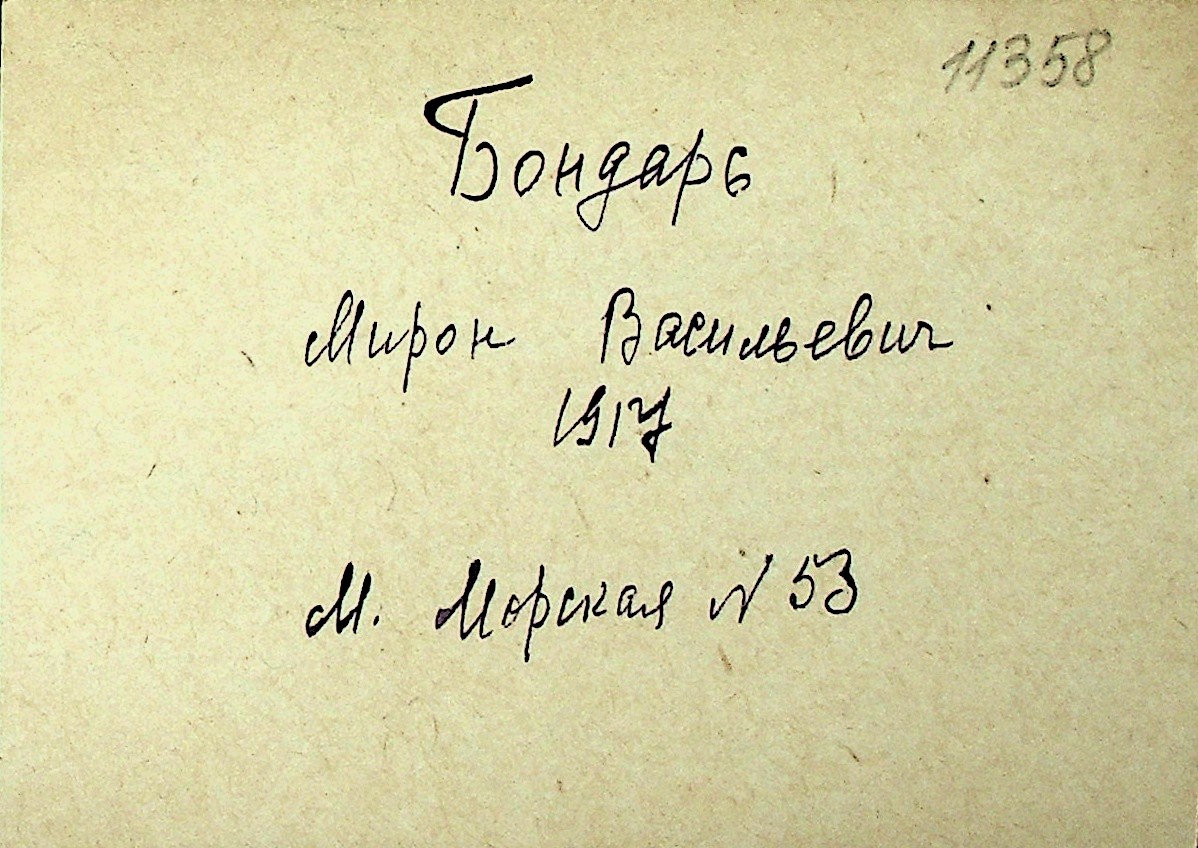 11358
Бондарь
Мирон Васильевич
1917
М. Морская N 53